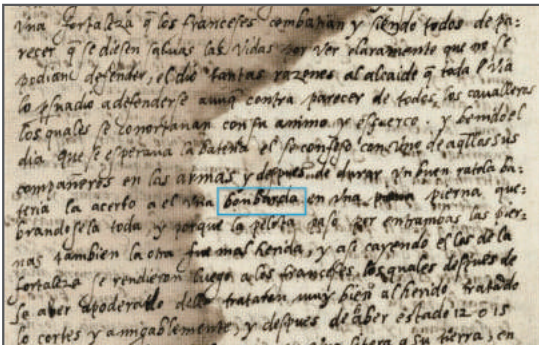 una fortaleza q̃ los franceses combatian y siendo todos de pa-
recer q̃ se diesen salbas las vidas por ver claramente que no se
podian defender, el dio tantas razones al alcaide q̃ toda via
lo psuadio a defenderse aunq̃ contra parecer de todos los cavalleros
los quales se conortaban con su animo y esfuerço. y benido el
dia que se esperava la bateria el se confeso con uno de aq̃llos sus
compañeros en las armas y despues de durar un buen rato la ba-
teria la acerto a el una bonbarda en una pierna que-
brandosela toda y porque la pelota paso por entrambas las pier-
nas tambien la otra fue mal herida, y asi cayendo el los de la
fortaleza se rendieron luego a los franceses, los quales despues de
se aber apoderado della trataron muy bien al herido, tratado
lo cortes y amigablemente, y despues de aber estado 12 o 15
litera a su tierra, en